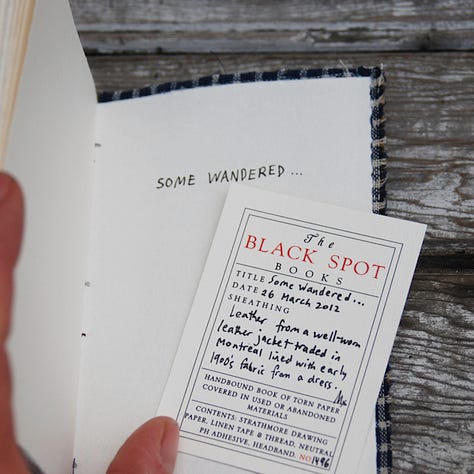 SOME WANDERED...
The
BLACK SPOT
BOOKS
TITLE Some Wandered...
DATE 26 March 2012
SHEATHING
Leather from a well-worn
leather jacket traded in
Montréal lined with early
1900's fabric from a dress.
HANDBOUND BOOK OF TORN PAPER
COVERED IN USED OR ABANDONED
MATERIALS
CONTENTS: STRATHMORE DRAWING
PAPER, LINEN TAPE & THREAD, NEUTRAL
PH ADHESIVE, HEADBAND. NO 1496